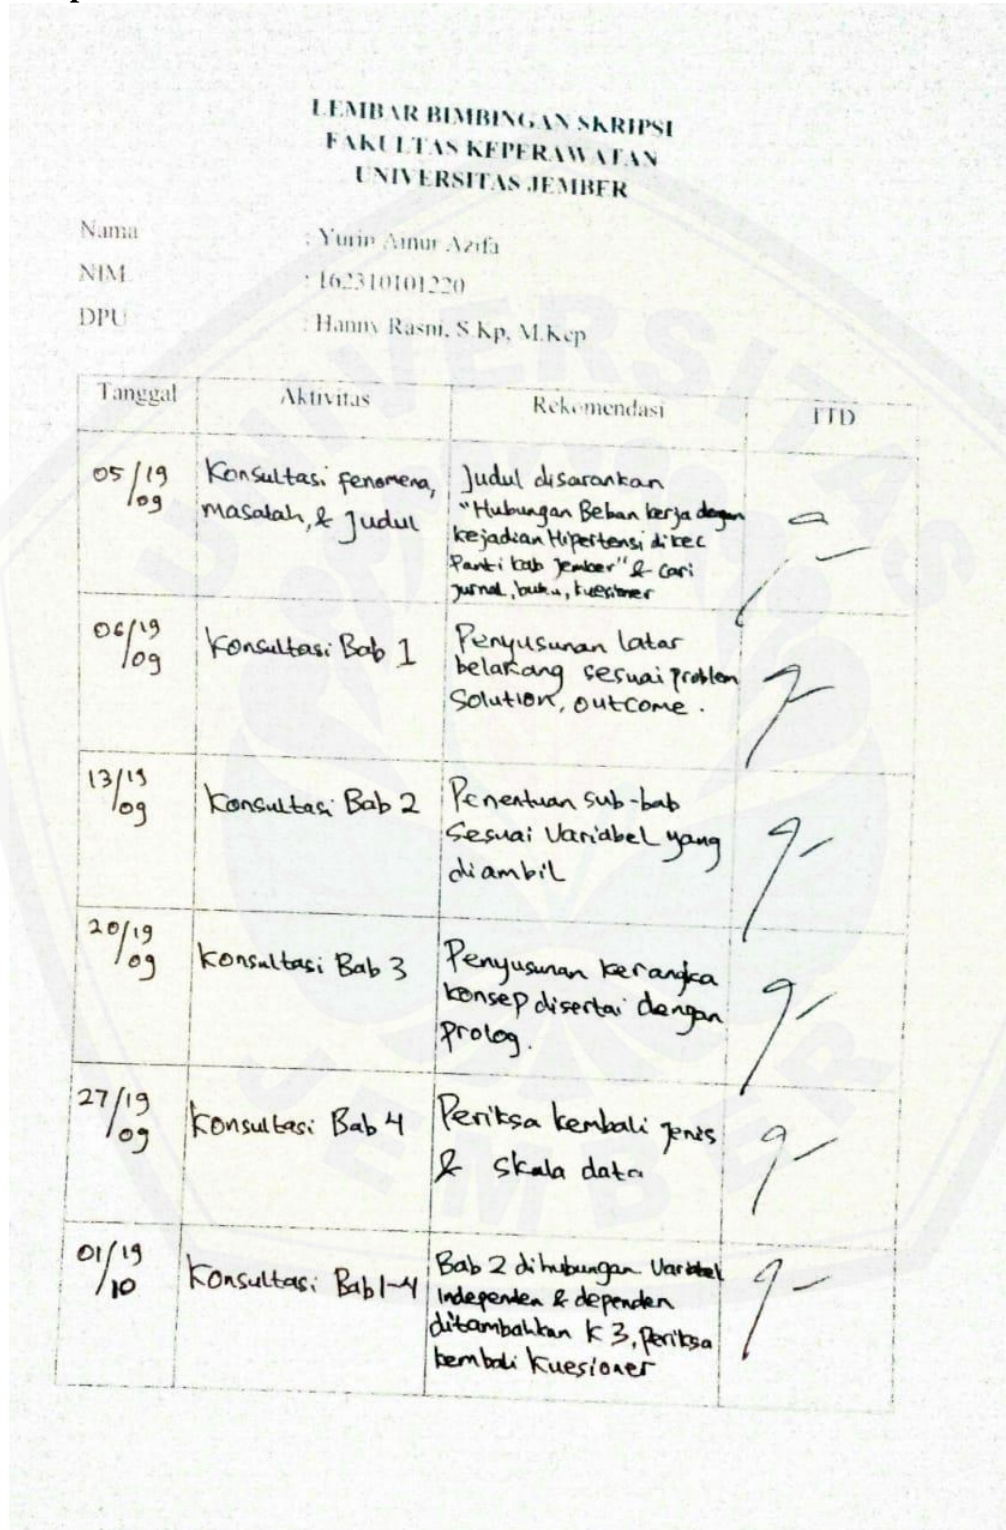 LEMBAR BIMBINGAN SKRIPSI
FAKULTAS KEPERAWATAN
UNIVERSITAS JEMBER
Nama : Yurin Ainur Azifa
NIM : 162310101220
DPU : Hanny Rasni, S.Kp, M.Kep
Tanggal Aktivitas Rekomendasi TTD
05/19
/09
Konsultasi fenomena,
masalah, & Judul
Judul disarankan
"Hubungan Beban kerja dengan
kejadian Hipertensi di kec
Panti kab Jember" & cari
jurnal, buku, kuesioner
06/19
/09
Konsultasi Bab 1
Penyusunan latar
belakang sesuai problem
Solution, outcome.
13/19
/09
Konsultasi Bab 2
Penentuan sub-bab
Sesuai Variabel yang
diambil
20/19
/09
Konsultasi Bab 3
Penyusunan kerangka
konsep disertai dengan
prolog.
27/19
/09
Konsultasi Bab 4
Periksa kembali jenis
& skala data
01/19
/10
Konsultasi Bab 1-4
Bab 2 dihubungan Variabel
independen & dependen
ditambahkan K3, periksa
kembali Kuesioner
UNIVERSITAS
JEMBER